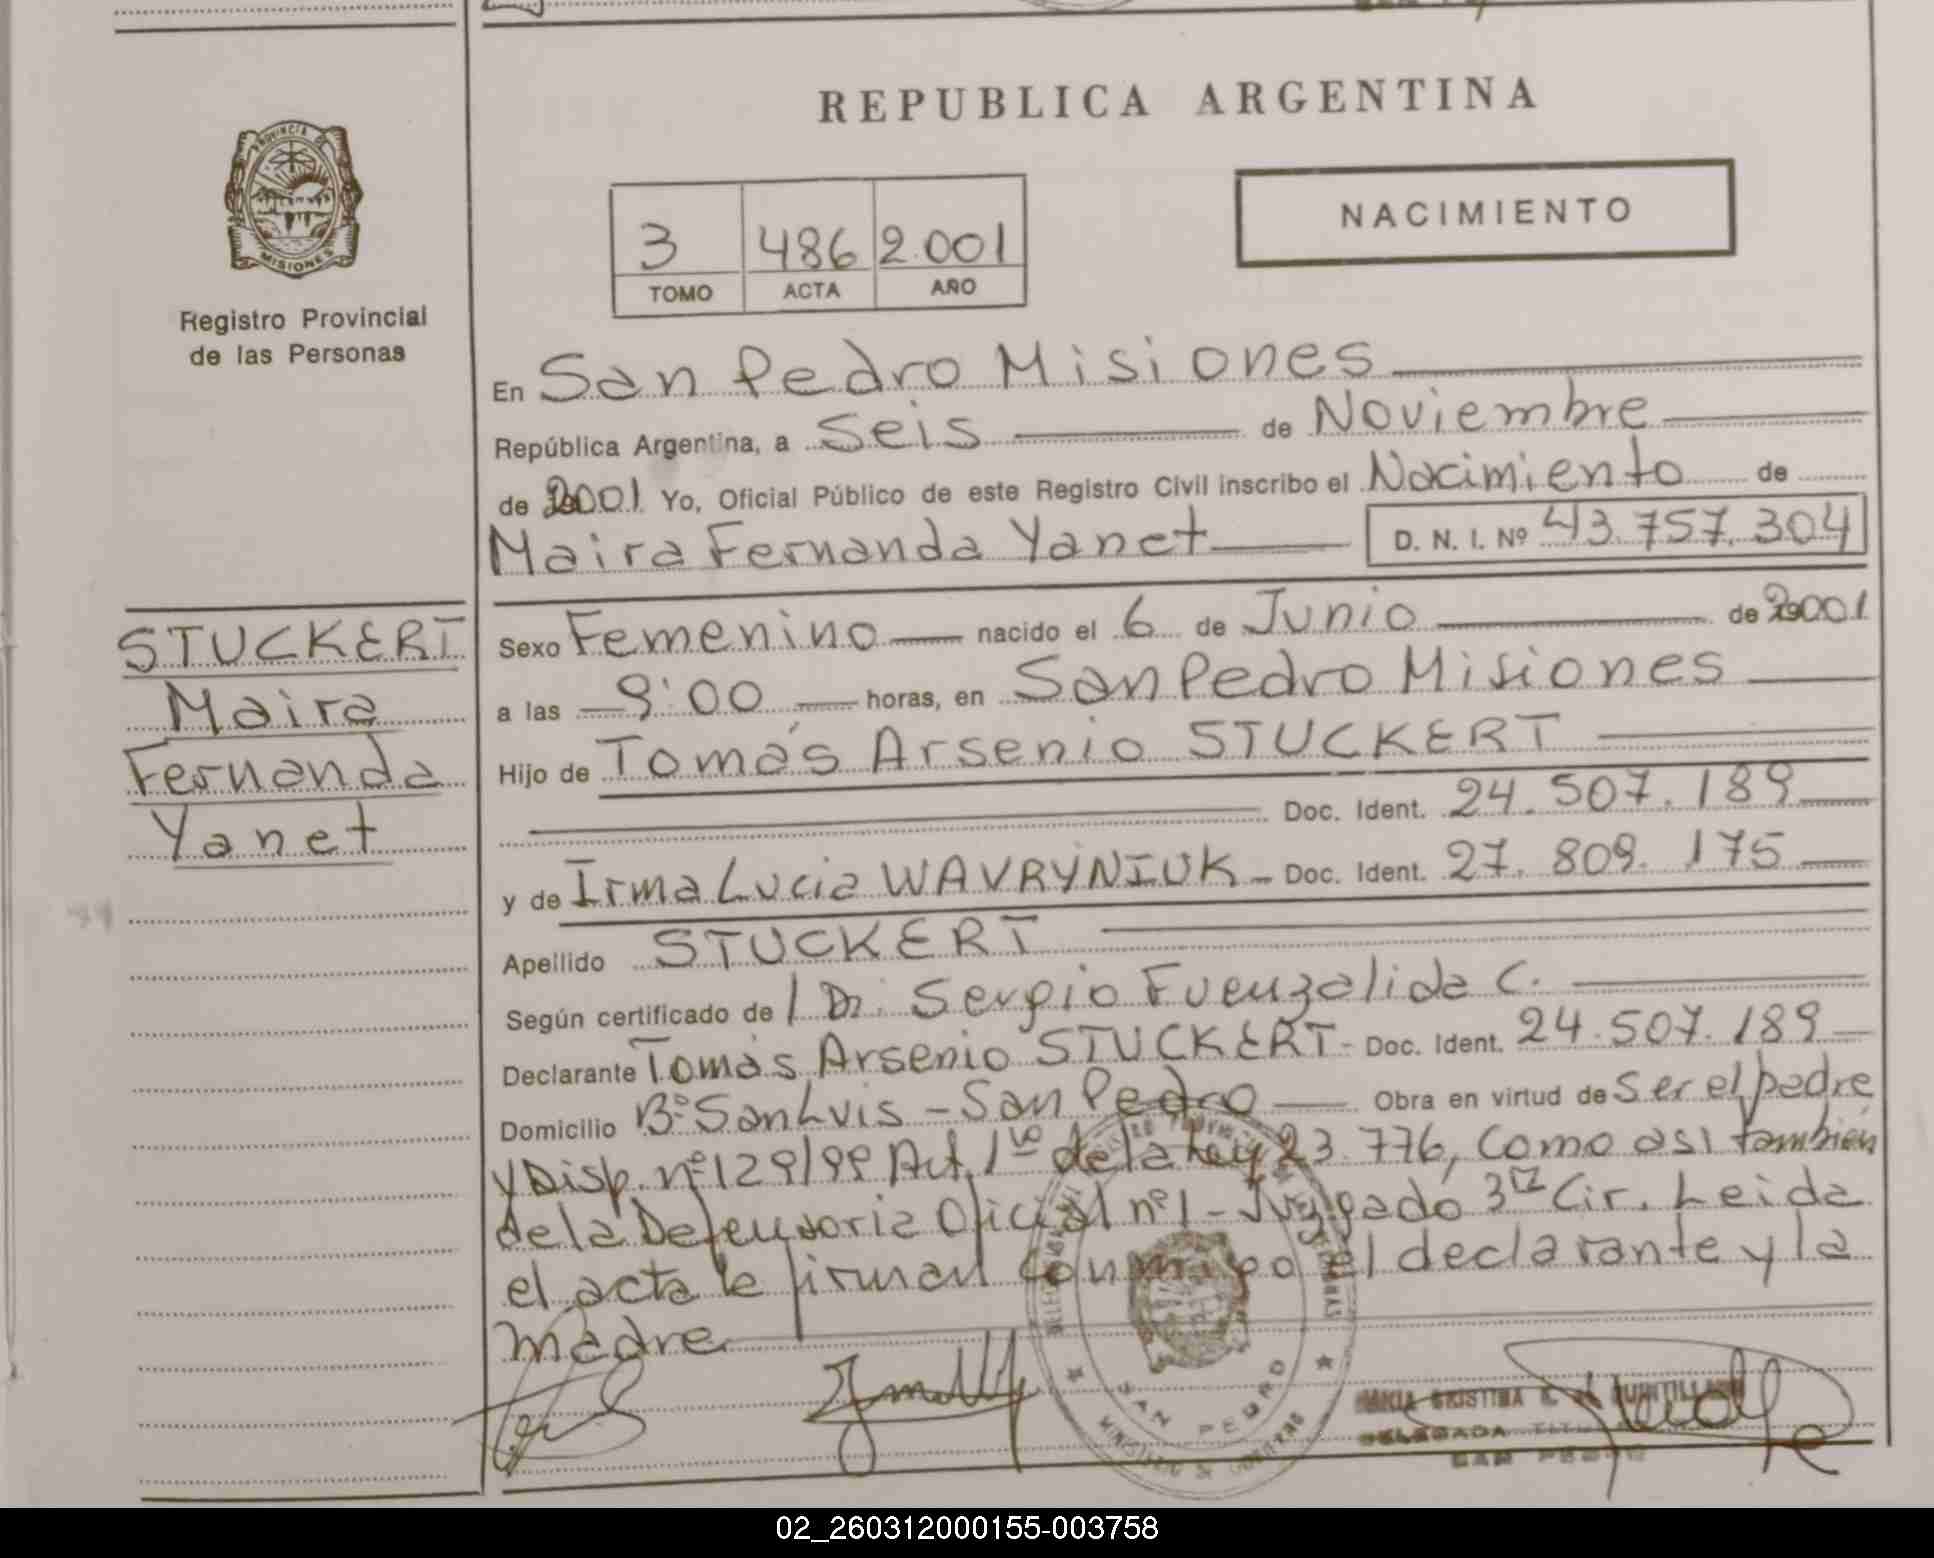 REPUBLICA ARGENTINA
PROVINCIA DE
MISIONES
Registro Provincial
de las Personas
3 486 2.001
TOMO ACTA AÑO
NACIMIENTO
En San Pedro Misiones
República Argentina, a Seis de Noviembre
de 2001 Yo, Oficial Público de este Registro Civil inscribo el Nacimiento de
Maira Fernanda Yanet D. N. I. Nº 43.757.304
STUCKERT
Maira
Fernanda
Yanet
Sexo Femenino nacido el 6 de Junio de 2001
a las 9:00 horas, en San Pedro Misiones
Hijo de Tomás Arsenio STUCKERT
Doc. Ident. 24.507.189
y de Irma Lucia WAVRYNIUK - Doc. Ident. 27.809.175
Apellido STUCKERT
Según certificado de / Dr. Sergio Fuenzalida C.
Declarante Tomás Arsenio STUCKERT - Doc. Ident. 24.507.189
Domicilio Bº San Luis - San Pedro Obra en virtud de Ser el padre
y Disp. nº 129/99 Art. 1º de la Ley 23.776, Como asi también
de la Defensoria Oficial nº 1 - Juzgado 3ra Cir. Leida
el acta la firman conmigo el declarante y la
madre
SAN PEDRO
DELEGADA
SAN PEDRO
02_260312000155-003758